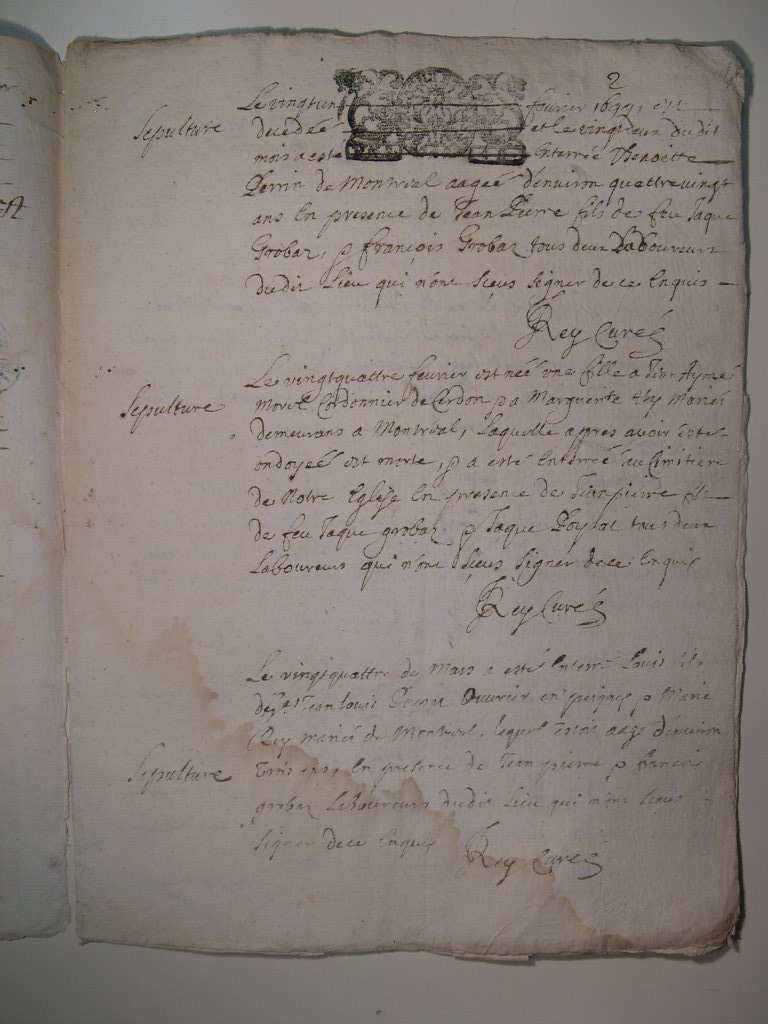 2
Sepulture
Le vingt un fevrier 1699, est
decedée et le vingt deux dudit
mois a esté Enterrée Benoitte
Perrin de Montreal aagée d'environ quattre vingt
ans En presence de Jean Pierre fils de feu Jaque
Grobaz, & françois Grobaz tous deux Laboureurs
dudit Lieu qui n'ont sçeus signer de ce Enquis
Rey Curé
Sepulture
Le vingt quattre fevrier est née une fille a Jean Aymé
Morel Cordonnier de Cerdon & a Marguerite Mariés
demeurans a Montreal, Laquelle apres avoir esté
ondoyeé est morte, & a esté Enterrée au Cimitiere
de Notre Eglise En presence de Jean pierre fils
de feu Jaque grobaz & Jaque tous deux
Laboureurs qui n'ont sçeus signer de ce Enquis
Rey Curé
Sepulture
Le vingt quattre de Mars a esté Enterré Louis fils
de Jean Louis Ouvrier en peignes & Marie
Rey mariés de Montreal, lequel estoit aagé d'environ
Trois ans, En presence de Jean pierre & francois
grobaz Laboureurs dudit Lieu qui n'ont sceus
signer de ce Enquis
Rey Curé